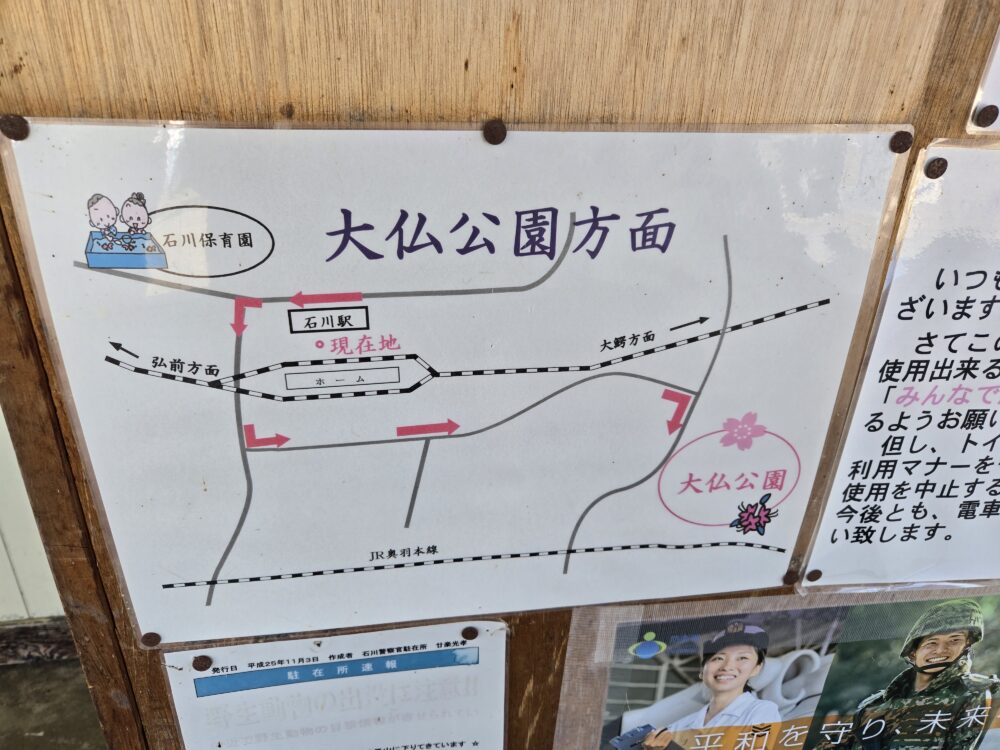 大仏公園方面
石川保育園
石川駅
現在地
弘前方面
ホーム
大鰐方面
大仏公園
JR奥羽本線
いつも
ざいます
さてこの
使用出来る
「みんなで
るようお願い
但し、トイ
利用マナーを
使用を中止する
今後とも、電車
い致します。
発行日 平成25年11月3日 作成者 石川警察官駐在所 廿楽光孝
駐在所速報
山に下りてきています ☆
平和を守り、未来